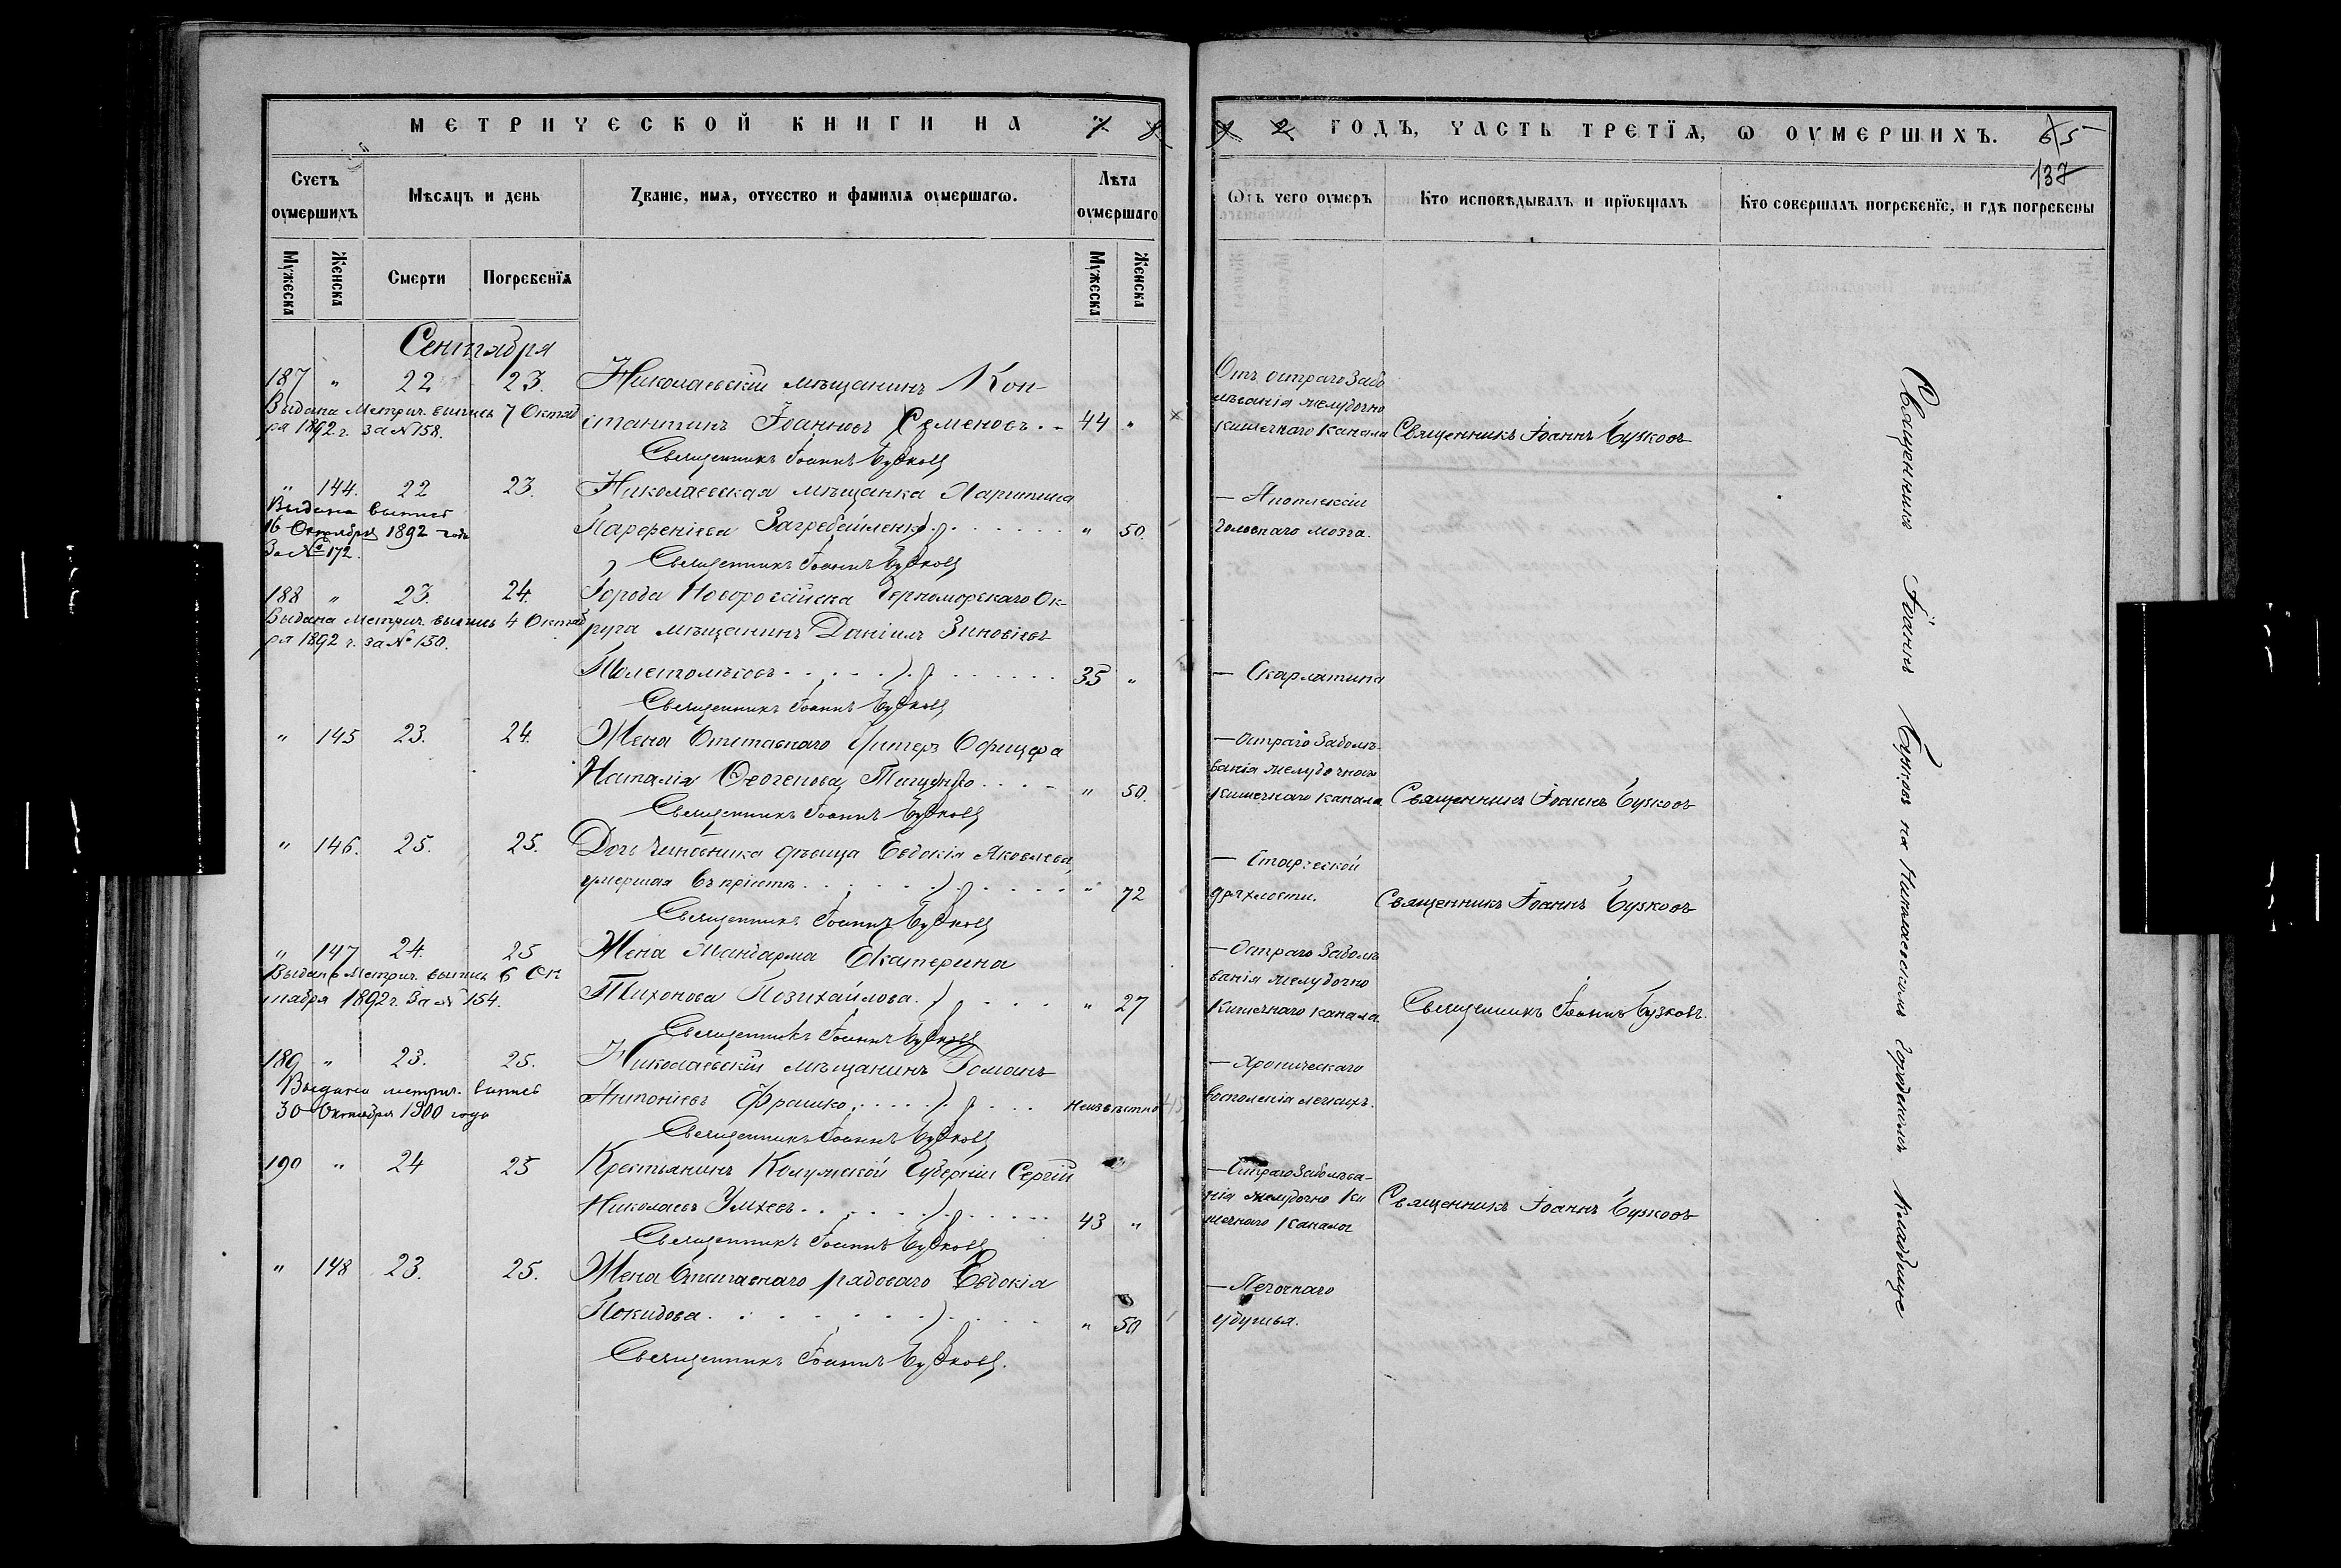 МЕТРИЧЕСКОЙ КНИГИ НА
Счетъ оумершихъ
Мѣсяцъ и день
Званіе, имя, отчество и фамилія оумершагѡ.
Лѣта оумершаго
Мужеска
Женска
Смерти
Погребенїя
Мужеска
Женска
Сентября
187 " 22 23. Николаевскій мѣщанинъ Кон-
Выдана Метрич. выпись 7 Октяб
ря 1892 г. за № 158.
стантинъ Іоанновъ Семеновъ. 44 "
Священникъ Іоаннъ Бузковъ
" 144. 22 23. Николаевская мѣщанка Харитина
Выдана выпись
16 Октября 1892 года
За № 172.
Парфеніева Загребайленко " 50.
Священникъ Іоаннъ Бузковъ
188 " 23. 24. Города Новоросійска Черноморскаго Ок-
Выдана Метрич. выпись 4 Октяб
ря 1892 г. за № 150.
руга мѣщанинъ Даніилъ Зиновіевъ
35 "
Священникъ Іоаннъ Бузковъ
" 145 23. 24. Жена Отставнаго Унтеръ Офицера
Наталія " 50.
Священникъ Іоаннъ Бузковъ
" 146. 25. 25. Дочь Чиновника дѣвица Евдокія Яковлева
умершая въ пріютѣ " 72
Священникъ Іоаннъ Бузковъ
" 147 24. 25 Жена Жандарма Екатерина
Выдана Метрич. выпись 6 Ок
тября 1892 г. За № 154.
Тихонова Позихайлова. " 27
Священникъ Іоаннъ Бузковъ
189 " 23. 25. Николаевскій мѣщанинъ Романъ
Выдана метрич. выпись
30 Октября 1900 года
Антоніевъ Фрашко Неизвѣстно
Священникъ Іоаннъ Бузковъ
190 " 24 25 Крестьянинъ Калужской Губерніи Сергій
Николаевъ 43 "
Священникъ Іоаннъ Бузковъ
" 148 23. 25. Жена Отставнаго рядоваго Евдокія
Покидова " 50
Священникъ Іоаннъ Бузковъ.
ГОДЪ, ЧАСТЬ ТРЕТЇЯ, Ѡ ОУМЕРШИХЪ. 65
137
Ѿ чего оумеръ
Кто исповѣдывалъ и прїобщалъ
Кто совершалъ погребенїе, и гдѣ погребены
Отъ остраго забо
лѣванія желудочно
кишечнаго канала Священникъ Іоаннъ Бузковъ
— Апоплексіи
головнаго мозга.
— Скарлатина
— Остраго Заболѣ
ванія желудочно
кишечнаго канала Священникъ Іоаннъ Бузковъ
— Старческой
дряхлости. Священникъ Іоаннъ Бузковъ
— Остраго Заболѣ
ванія желудочно
кишечнаго канала. Священникъ Іоаннъ Бузковъ.
— Хроническаго
воспаленія легкихъ.
— Остраго Заболѣва-
нія желудочно Ки
шечнаго Канала Священникъ Іоаннъ Бузковъ
— Легочнаго
удушья.
Священникъ Іоаннъ Бузковъ на Николаевскомъ городскомъ кладбище